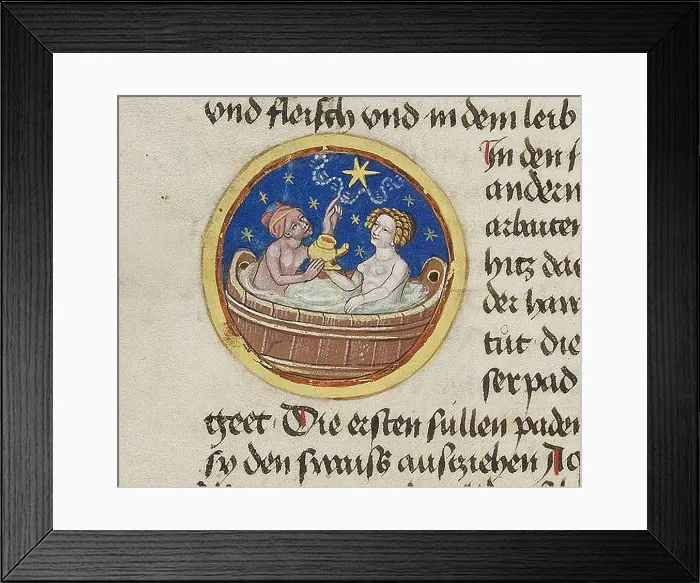 vnd fleisch vnd in dem leib
In den
andern
arbaiten
hitz das
der han
tůt die
ser pad
tzeet Die ersten süllen paden
sy den swaiss ausziehen